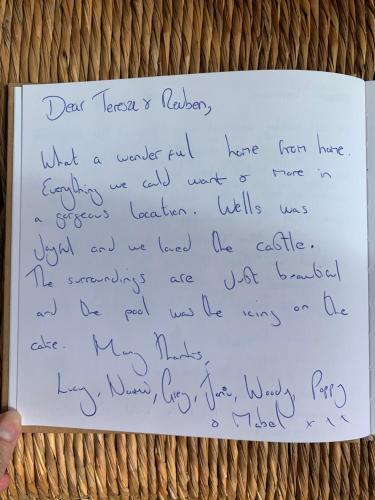 Dear Teresa & Reuben,
What a wonderful home from home.
Everything we could want & more in
a gorgeous location. Wells was
Joyful and we loved the castle.
The surroundings are Just beautiful
and the pool was the icing on the
cake. Many Thanks,
Lucy, Greg, Woody, Poppy
& Mabel x x x